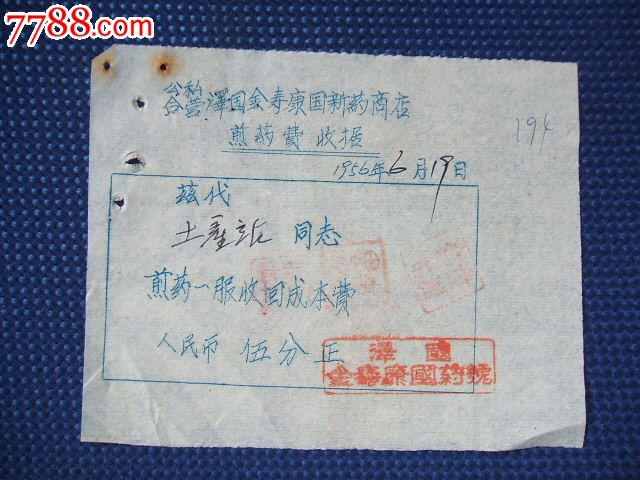 7788.com
公私
合营澤国金寿康国新药商店
煎药費收据
194
1956年6月19日
兹代
土产站 同志
煎药一服收回成本費
人民币 伍分正
澤國
金壽康國药號